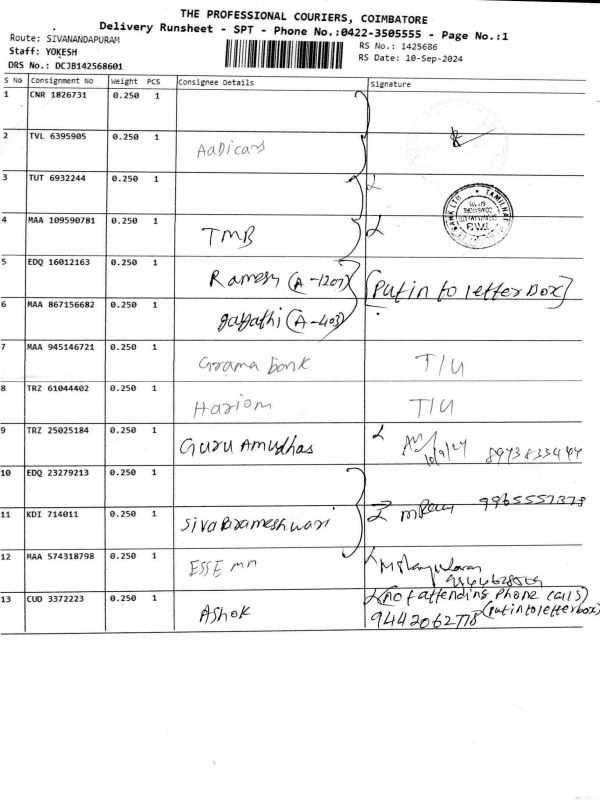 THE PROFESSIONAL COURIERS, COIMBATORE
Delivery Runsheet - SPT - Phone No.:0422-3505555 - Page No.:1
Route: SIVANANDAPURAM
RS No.: 1425686
Staff: YOKESH
RS Date: 10-Sep-2024
DRS No.: DCJB142568601
S No Consignment No Weight PCS Consignee Details Signature
1 CNR 1826731 0.250 1
2 TVL 6395905 0.250 1 AaDicars
3 TUT 6932244 0.250 1
4 MAA 109590781 0.250 1 TMB
5 EDQ 16012163 0.250 1 Ramesh (A-1207) [Put in to letter Box]
6 MAA 867156682 0.250 1 gayathi (A-403)
7 MAA 945146721 0.250 1 Grama bank T/U
8 TRZ 61044402 0.250 1 Hariom T/U
9 TRZ 25025184 0.250 1 Guru Amudhas 10/9/24
10 EDQ 23279213 0.250 1
11 KDI 714011 0.250 1 Siva Parameshwari
12 MAA 574318798 0.250 1 ESSE mn
13 CUD 3372223 0.250 1 Ashok (Not attending Phone calls)
9442062778 (Put in to letter box)